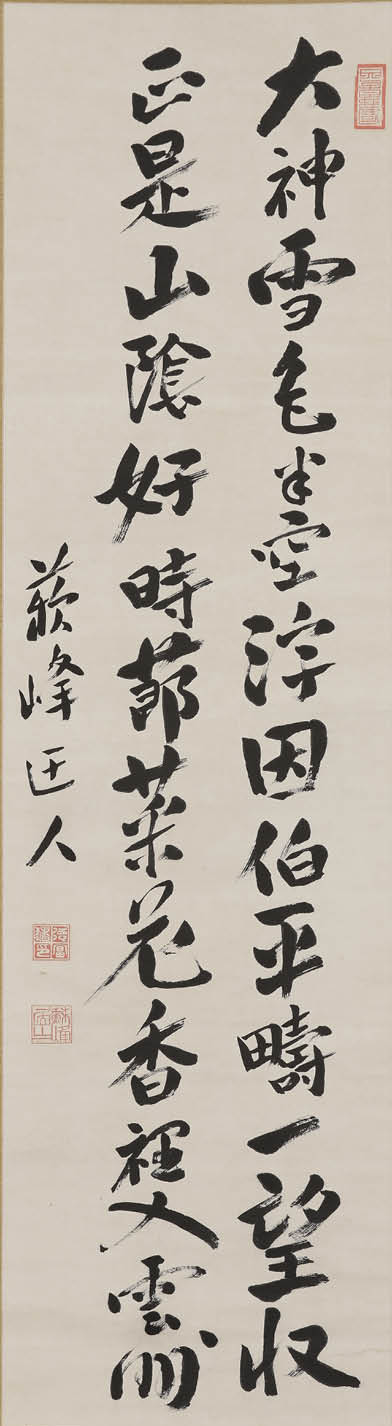 大神雪色半空浮因伯平疇一望収
正是山陰好時節菜花香裡入雲州
蘇峰迂人